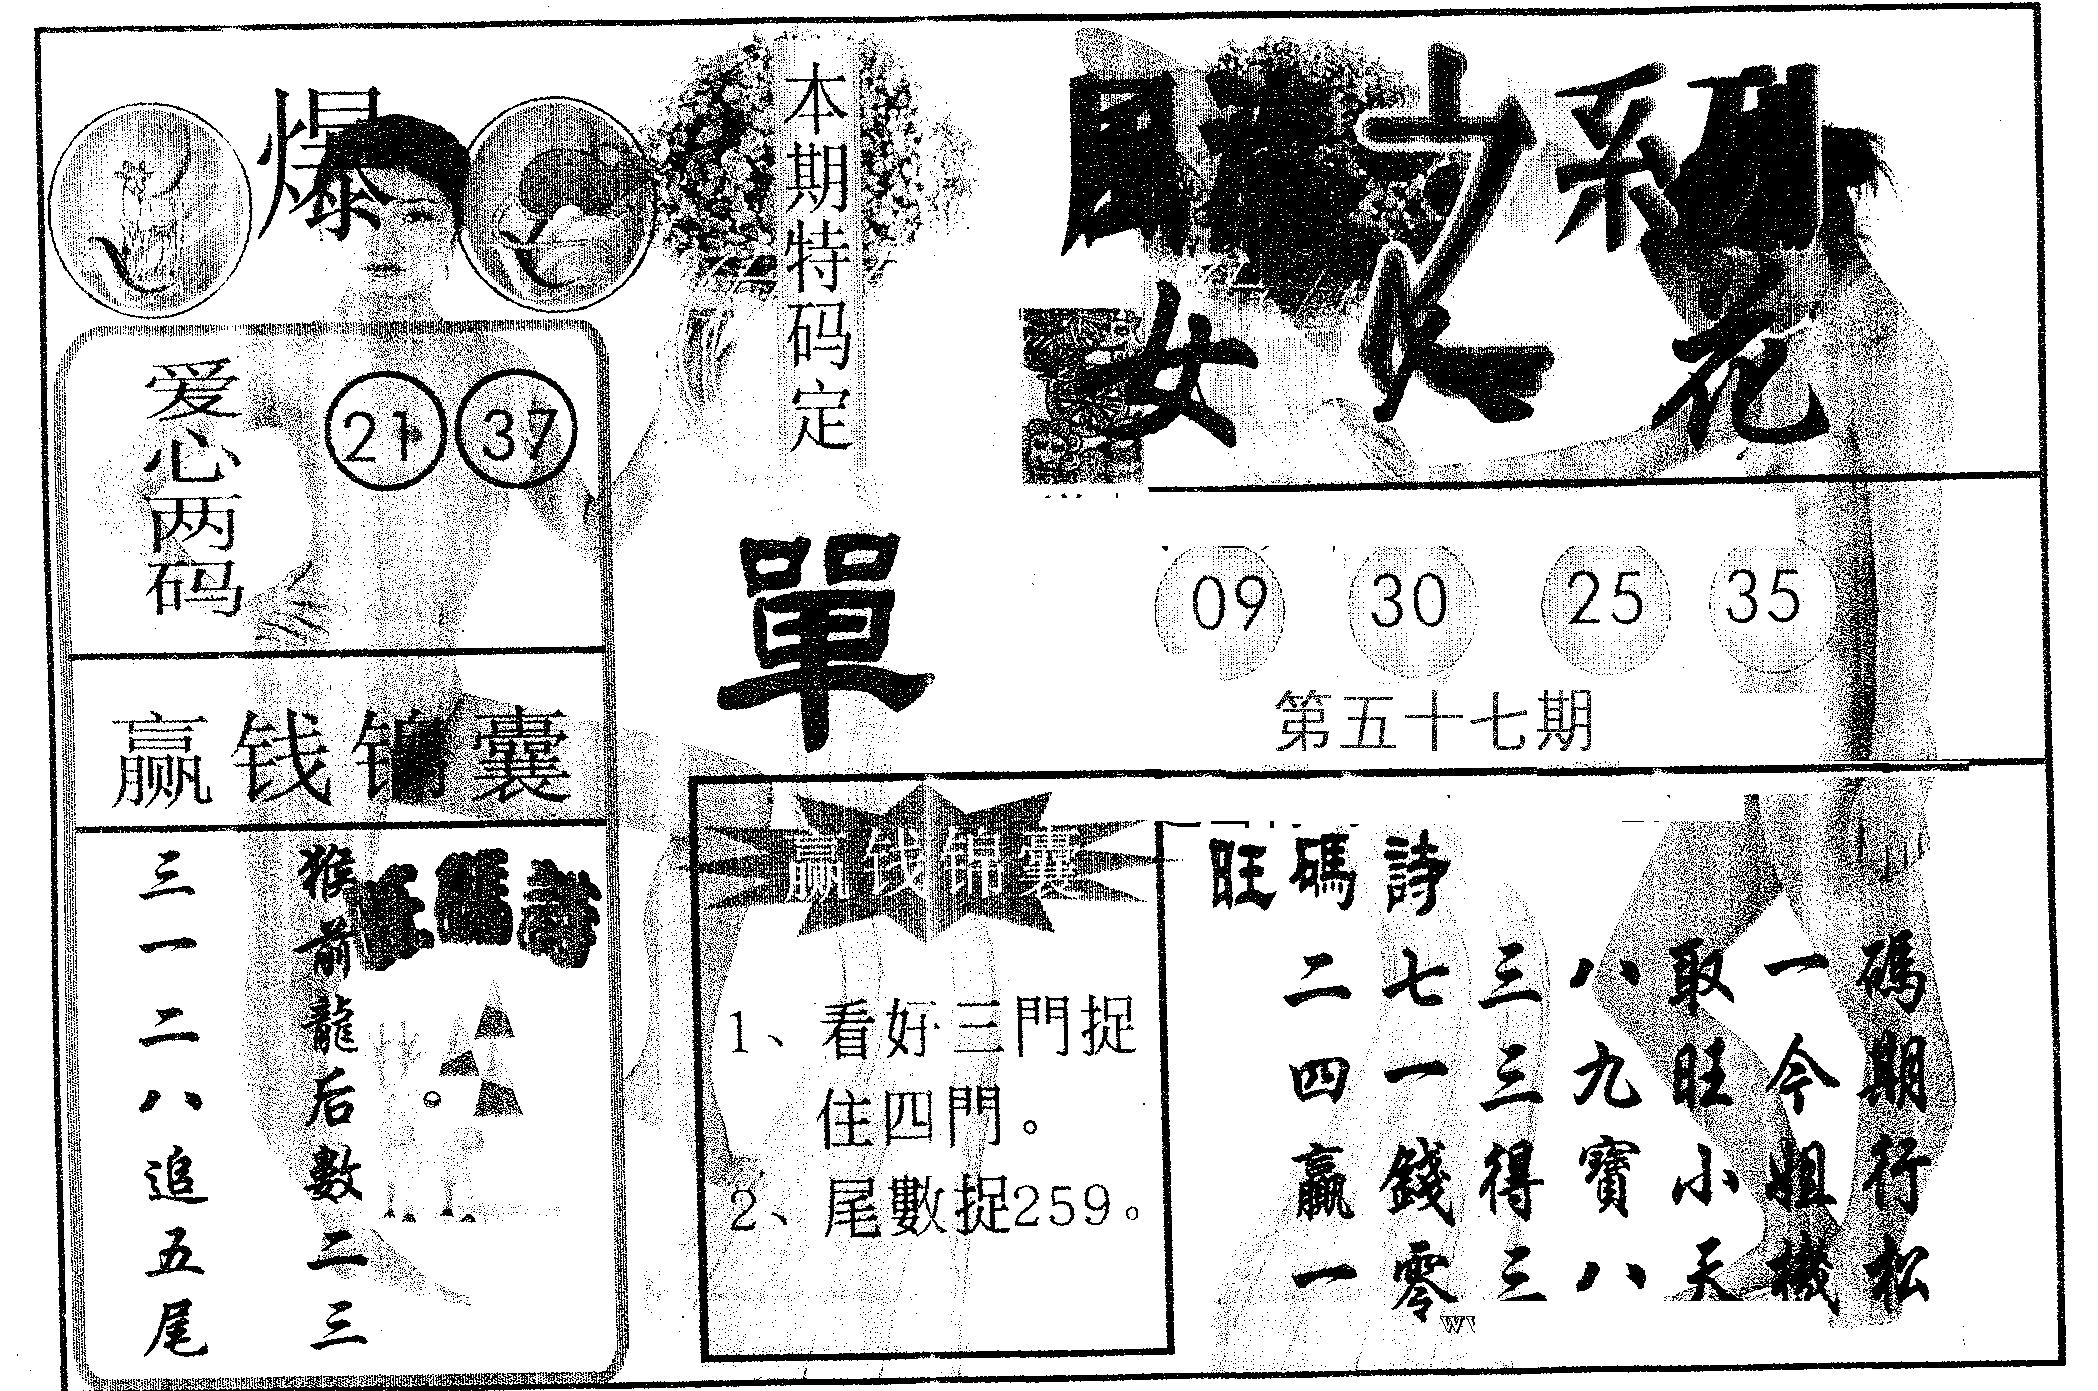 爆
本期特码定
單
女人花
爱心两码
21 37
09 30 25 35
第五十七期
赢钱锦囊
旺碼詩
猴前龍后數二三
三一二八追五尾
赢钱锦囊
1、看好三門捉
住四門。
2、尾數捉259。
旺碼詩
碼期行松
一今姐機
取旺小天
八九寶八
三三得三
七一錢零
二四贏一